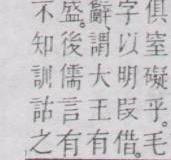 俱窒礙乎。毛
字以明叚借。
辭。謂大王有
盛。後儒言有
不知訓詁之